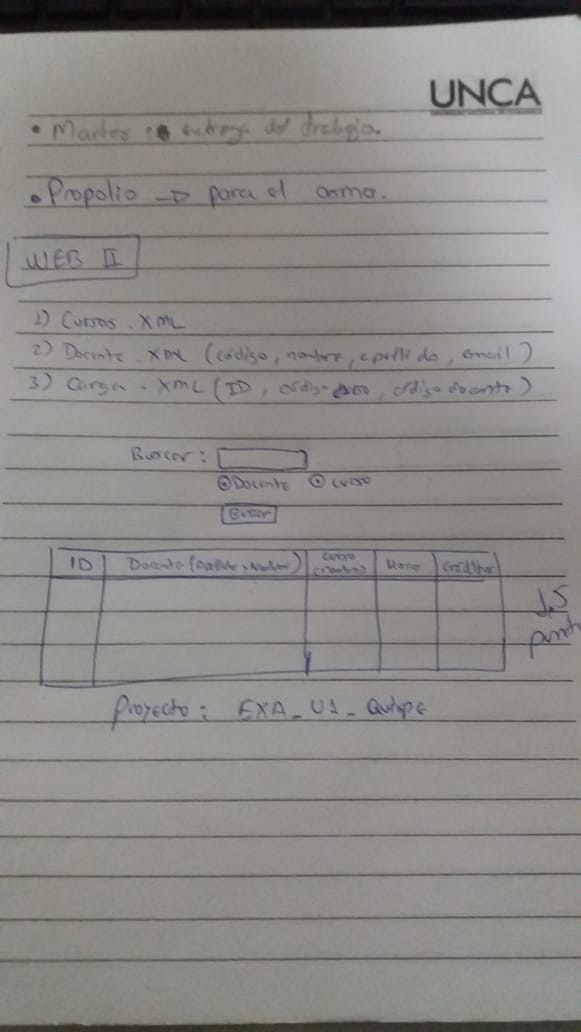 UNCA
• Martes : entrega del trabajo.
• Propolio → para el
WEB II
1) Cursos . XML
2) Docente . XML (código, nombre, apellido, email)
3) Carga . XML (ID, código curso, código docente)
Buscar :
Docente Curso
Buscar
ID Docente (Apellido, Nombre) Curso (nombre) Horas Créditos
1.5
Proyecto : EXA_U1_Quispe